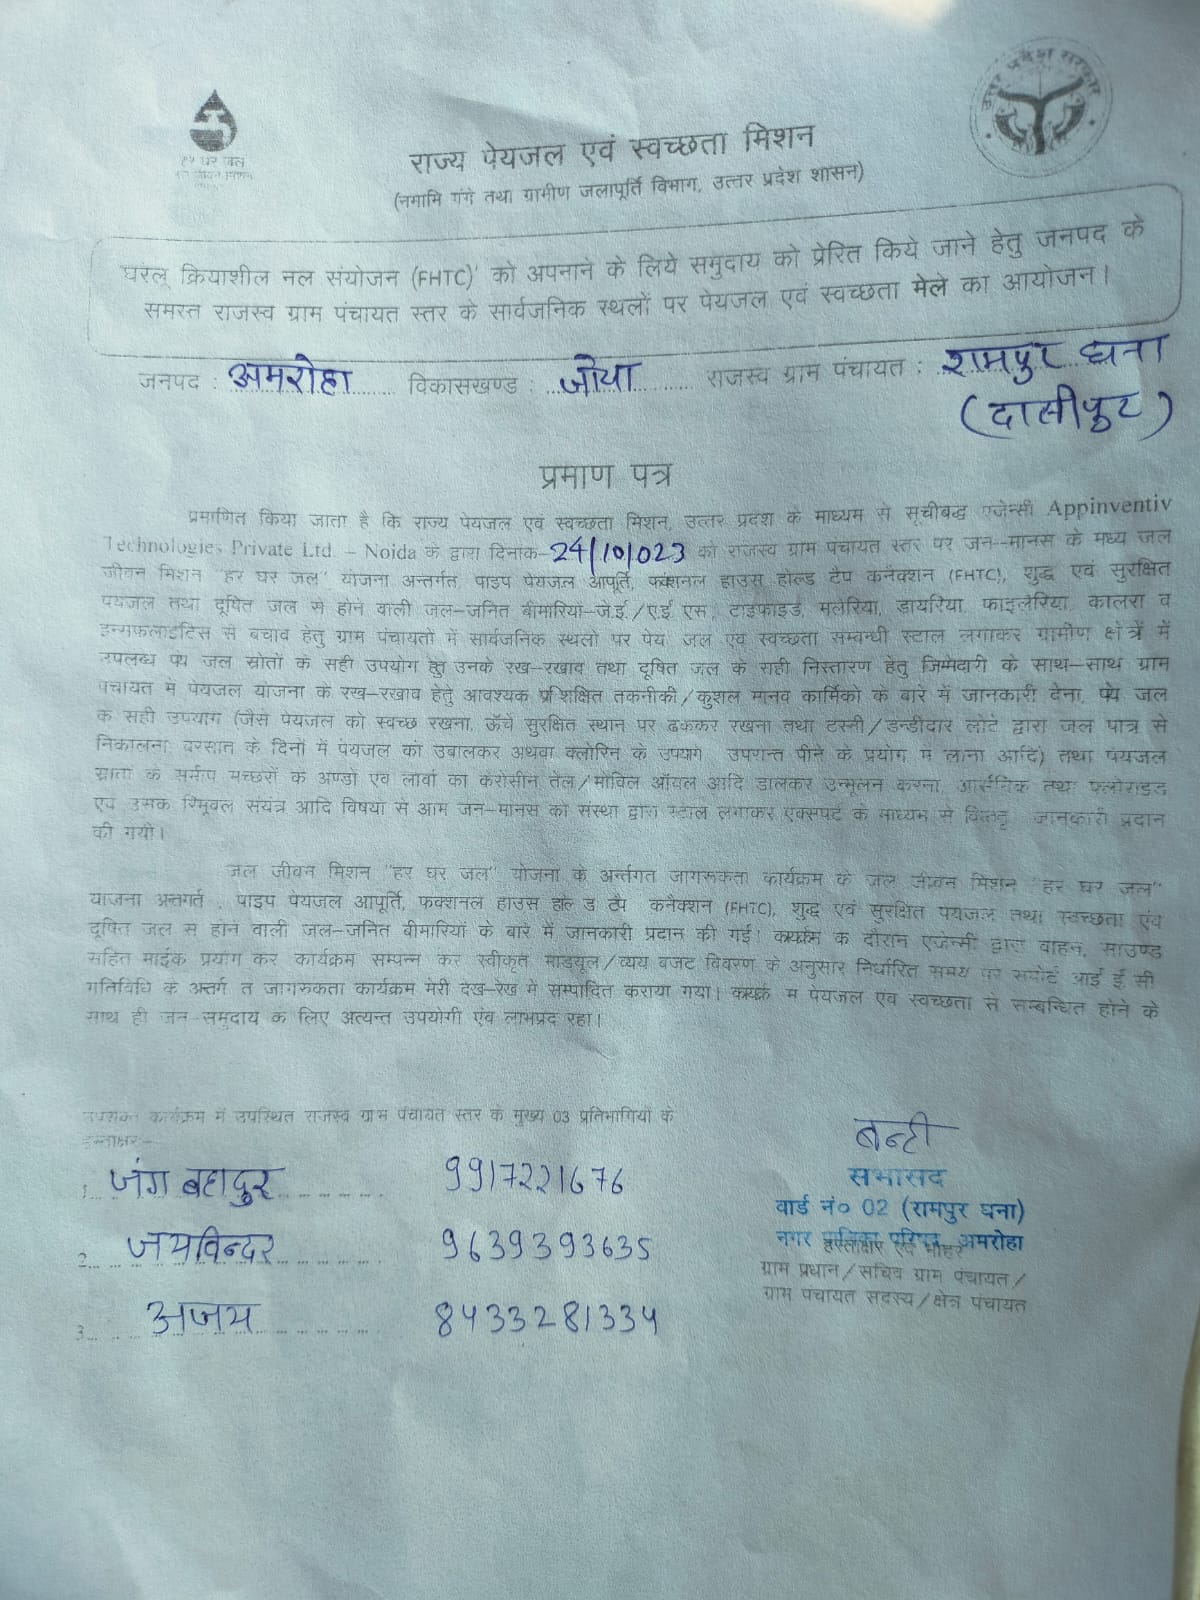 उत्तर प्रदेश सरकार
हर घर जल
राज्य पेयजल एवं स्वच्छता मिशन
(नमामि गंगे तथा ग्रामीण जलापूर्ति विभाग, उत्तर प्रदेश शासन)
'घरेलू क्रियाशील नल संयोजन (FHTC)' को अपनाने के लिये समुदाय को प्रेरित किये जाने हेतु जनपद के
समस्त राजस्व ग्राम पंचायत स्तर के सार्वजनिक स्थलों पर पेयजल एवं स्वच्छता मेले का आयोजन।
जनपद : अमरोहा विकासखण्ड : जोया राजस्व ग्राम पंचायत : रामपुर घना
(दासीपुर)
प्रमाण पत्र
प्रमाणित किया जाता है कि राज्य पेयजल एवं स्वच्छता मिशन, उत्तर प्रदेश के माध्यम से सूचीबद्ध एजेन्सी Appinventiv
Technologies Private Ltd. – Noida के द्वारा दिनांक-24/10/023 को राजस्व ग्राम पंचायत स्तर पर जन-मानस के मध्य जल
जीवन मिशन "हर घर जल" योजना अन्तर्गत पाइप पेयजल आपूर्ति, फंक्शनल हाउस होल्ड टैप कनैक्शन (FHTC), शुद्ध एवं सुरक्षित
पेयजल तथा दूषित जल से होने वाली जल-जनित बीमारियां-जे.ई./ए.ई.एस., टाइफाइड, मलेरिया, डायरिया, फाइलेरिया, कालरा व
से बचाव हेतु ग्राम पंचायतों में सार्वजनिक स्थलों पर पेय जल एवं स्वच्छता सम्बन्धी स्टाल लगाकर ग्रामीण क्षेत्रों में
उपलब्ध पेय जल स्रोतों के सही उपयोग हेतु उनके रख-रखाव तथा दूषित जल के सही निस्तारण हेतु जिम्मेदारी के साथ-साथ ग्राम
पंचायत में पेयजल योजना के रख-रखाव हेतु आवश्यक प्रशिक्षित तकनीकी/कुशल मानव कार्मिकों के बारे में जानकारी देना, पेय जल
के सही उपयोग (जैसे पेयजल को स्वच्छ रखना, ऊँचे सुरक्षित स्थान पर ढककर रखना तथा टस्नी/डन्डीदार लोटे द्वारा जल पात्र से
निकालना, बरसात के दिनों में पेयजल को उबालकर अथवा क्लोरिन के उपयोग उपरान्त पीने के प्रयोग में लाना आदि) तथा पेयजल
स्रोतों के समीप मच्छरों के अण्डों एवं लार्वा का केरोसीन तेल/मोविल ऑयल आदि डालकर उन्मूलन करना, आर्सेनिक तथा फ्लोराइड
एवं उसके रिमूवल संयंत्र आदि विषयों से आम जन-मानस को संस्था द्वारा स्टाल लगाकर एक्सपर्ट के माध्यम से विस्तृत जानकारी प्रदान
की गयी।
जल जीवन मिशन "हर घर जल" योजना के अर्न्तगत जागरूकता कार्यक्रम के जल जीवन मिशन "हर घर जल"
योजना अन्तर्गत , पाइप पेयजल आपूर्ति, फंक्शनल हाउस होल्ड टैप कनैक्शन (FHTC), शुद्ध एवं सुरक्षित पेयजल तथा स्वच्छता एंव
दूषित जल से होने वाली जल-जनित बीमारियों के बारे में जानकारी प्रदान की गई। कार्यक्रम के दौरान एजेन्सी द्वारा वाहन, साउण्ड
सहित माईक प्रयोग कर कार्यक्रम सम्पन्न कर स्वीकृत माड्यूल/व्यय बजट विवरण के अनुसार निर्धारित समय पर सपोर्ट आई.ई.सी.
गतिविधि के अन्तर्गत जागरुकता कार्यक्रम मेरी देख-रेख में सम्पादित कराया गया। कार्यक्रम पेयजल एंव स्वच्छता से सन्बन्धित होने के
साथ ही जन-समुदाय के लिए अत्यन्त उपयोगी एंव लाभप्रद रहा।
उपरोक्त कार्यक्रम में उपस्थित राजस्व ग्राम पंचायत स्तर के मुख्य 03 प्रतिभागियों के
हस्ताक्षर:-
1. जंग बहादुर 9917221676
2. जयविन्दर 9639393635
3. अजय 8433281334
बन्टी
सभासद
वार्ड नं० 02 (रामपुर घना)
नगर पालिका परिषद, अमरोहा
हस्ताक्षर एवं मोहर
ग्राम प्रधान/सचिव ग्राम पंचायत/
ग्राम पंचायत सदस्य/क्षेत्र पंचायत